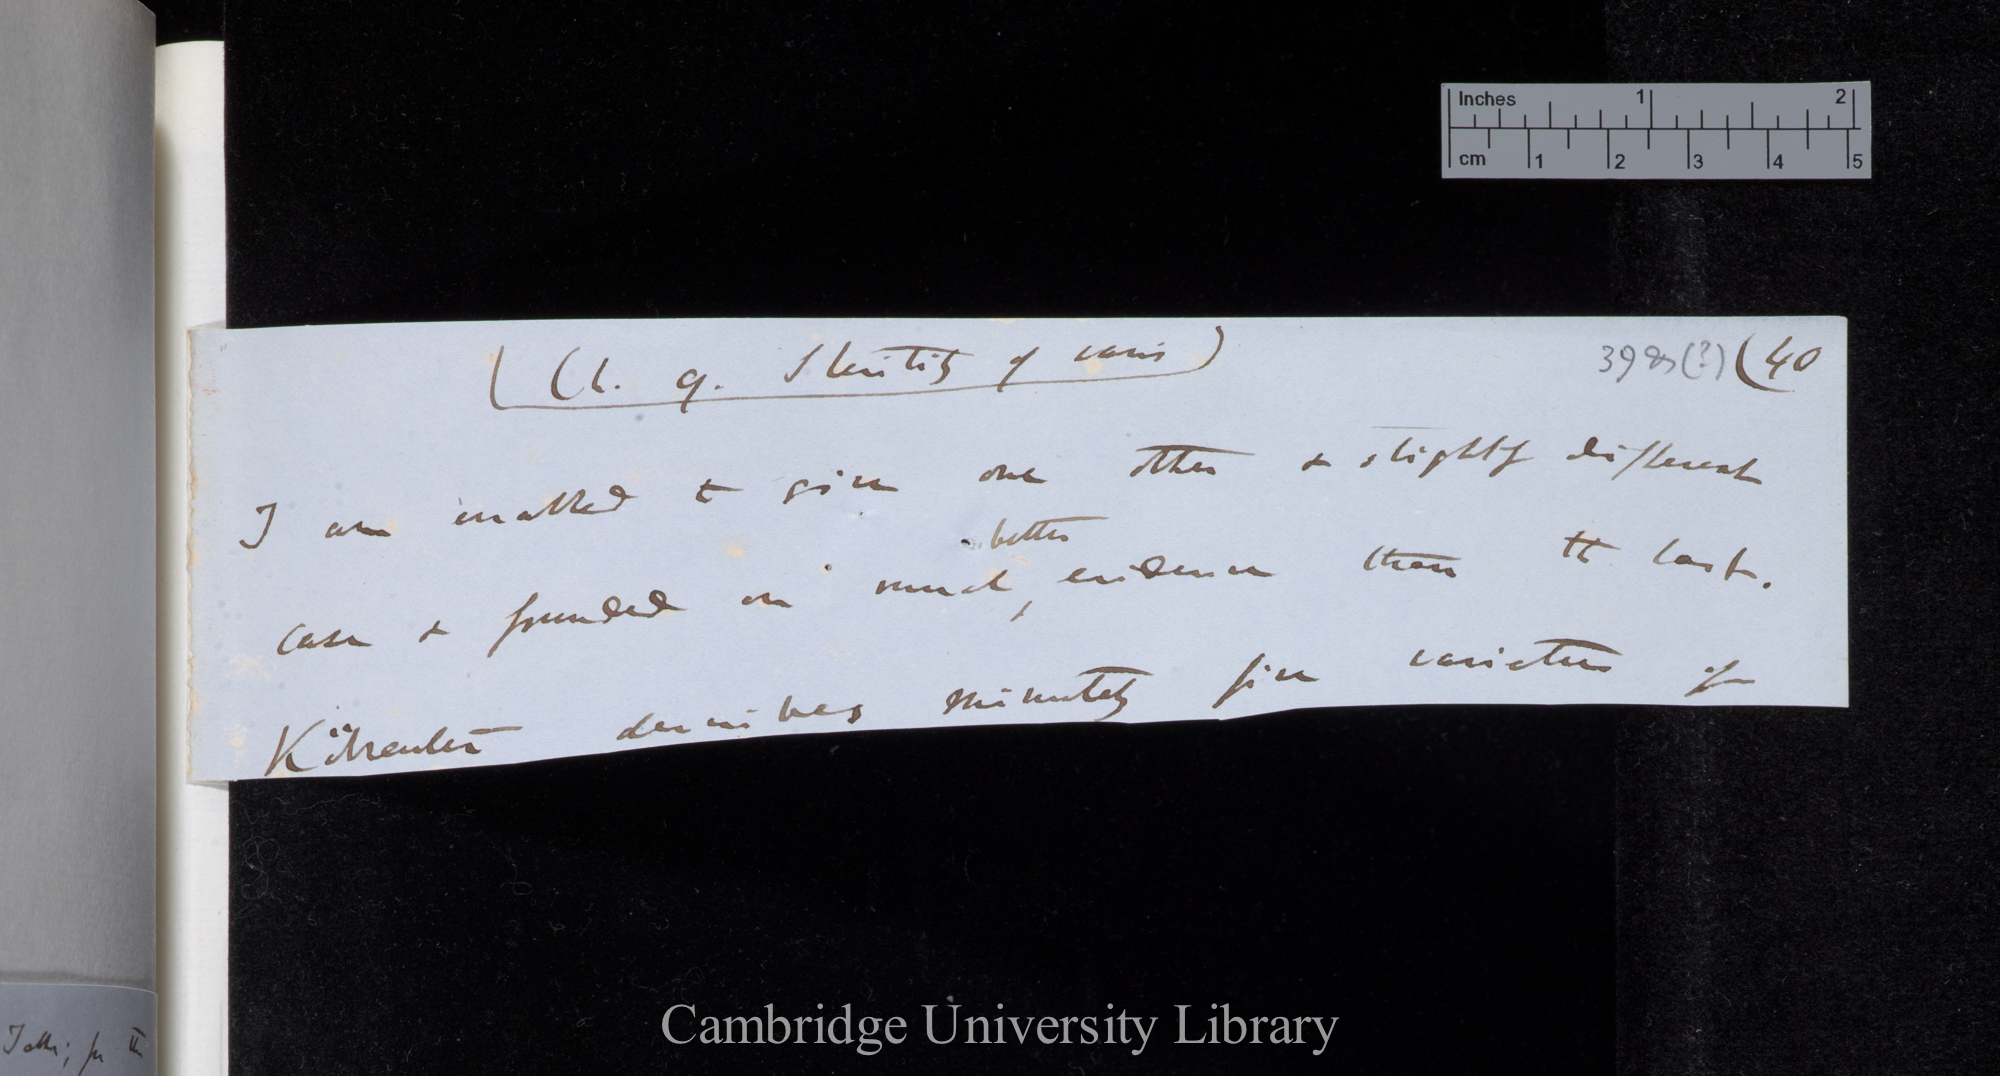 (Ch. 9. Sterility of vars) 39 (?) (40
I am enabled to give one other & slightly different
better
case & founded on much evidence than the last.
Kölreuter describes minutely five varieties of
Inches 1 2
cm 1 2 3 4 5
Cambridge University Library